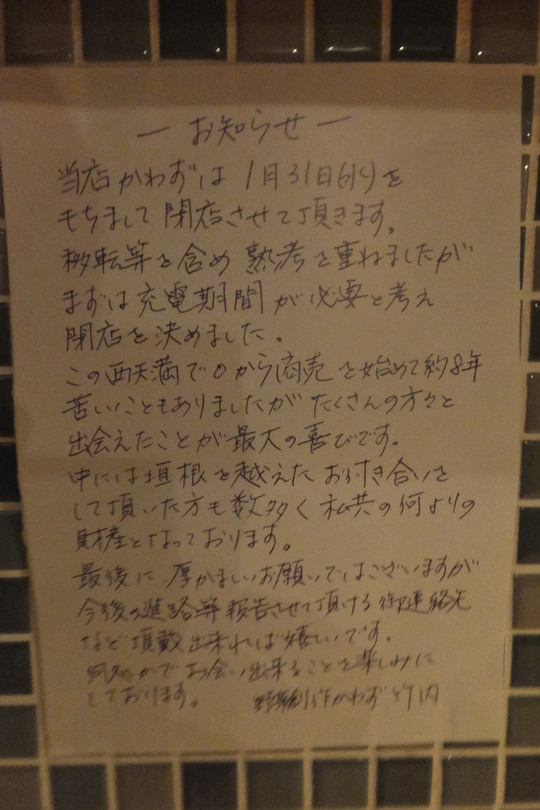 ー お知らせ ー
当店かわずは 1月31日(水)を
もちまして 閉店させて頂きます。
移転等を含め 熟考を重ねましたが
まずは充電期間が必要と考え
閉店を決めました。
この西天満で0から商売を始めて約8年
苦いこともありましたが たくさんの方々と
出会えたことが最大の喜びです。
中には垣根を越えた お付き合いを
して頂いた方も数多く 私共の何よりの
財産となっております。
最後に 厚かましいお願いではございますが
今後の進路等報告させて頂ける御連絡先
など頂戴出来れば嬉しいです。
何処かでお会い出来ることを楽しみに
しております。 かわず 竹内